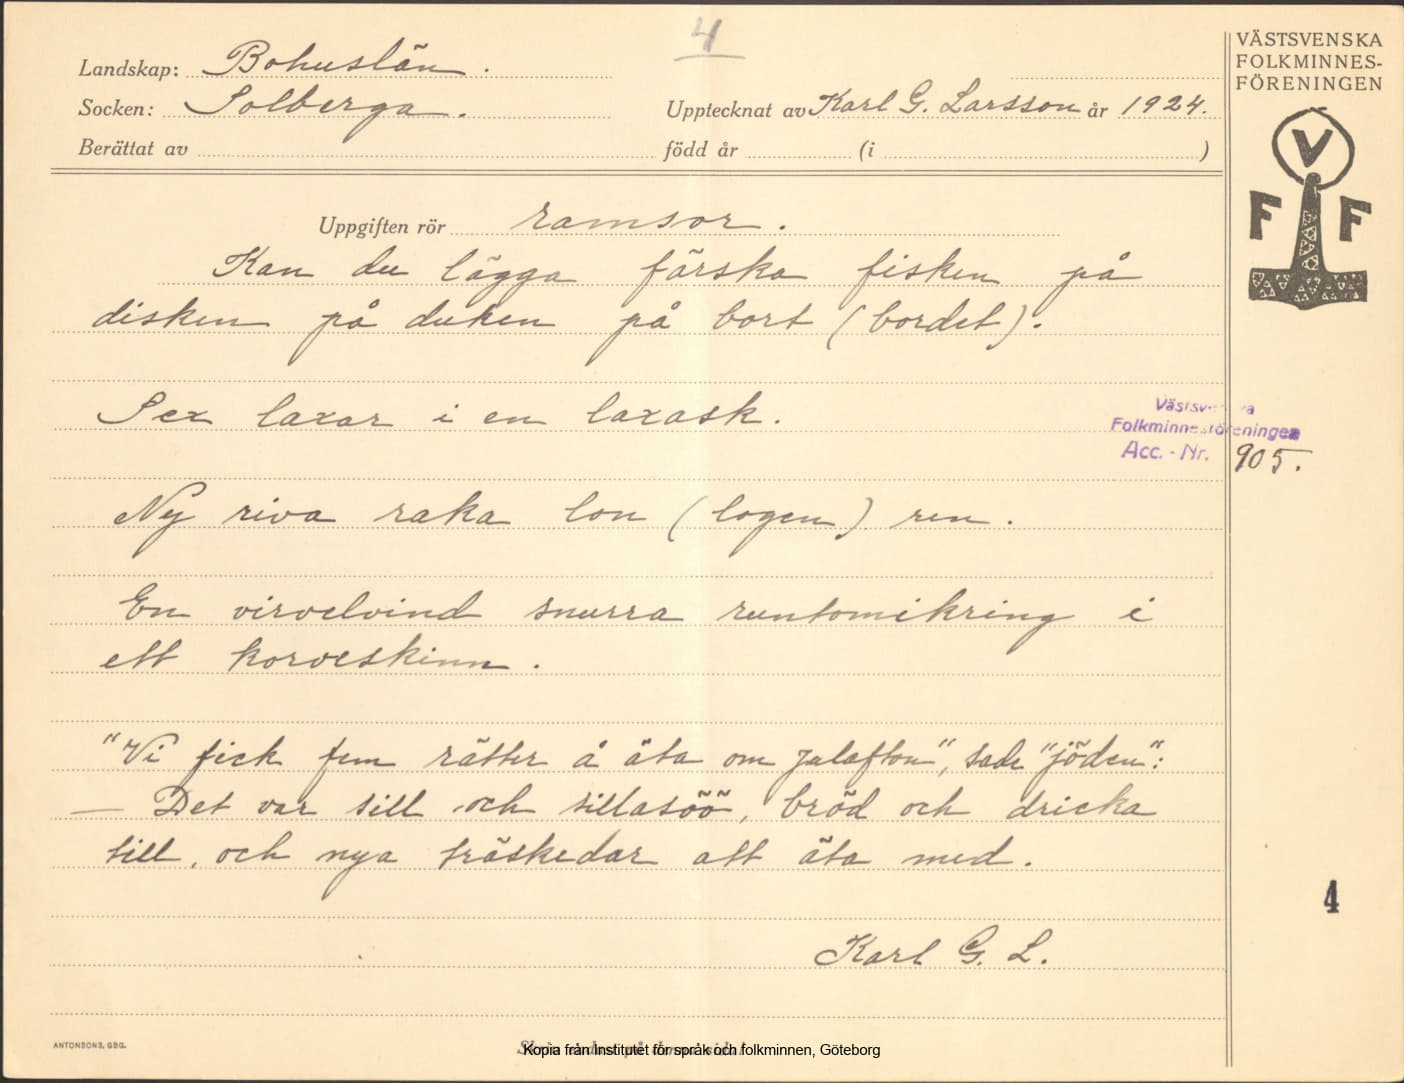 4
Landskap: Bohuslän.
Socken: Solberga.
Upptecknat av Karl G. Larsson år 1924.
Berättat av
född år (i )
VÄSTSVENSKA
FOLKMINNES-
FÖRENINGEN
V
F F
Uppgiften rör ramsor.
Kan du lägga färska fisken på
disken på duken på bort (bordet).
Sex laxar i en laxask.
Västsvenska
Folkminnesföreningen
Acc. - Nr. 905.
Ny riva raka lon (logen) ren.
En virvelvind snurra runtomikring i
ett korveskinn.
"Vi fick fem rätter å äta om julafton", sade "jöden":
— Det var sill och sillasöö, bröd och dricka
till, och nya träskedar att äta med.
4
Karl G. L.
ANTONSONS, GBG.
Kopia från Institutet för språk och folkminnen, Göteborg